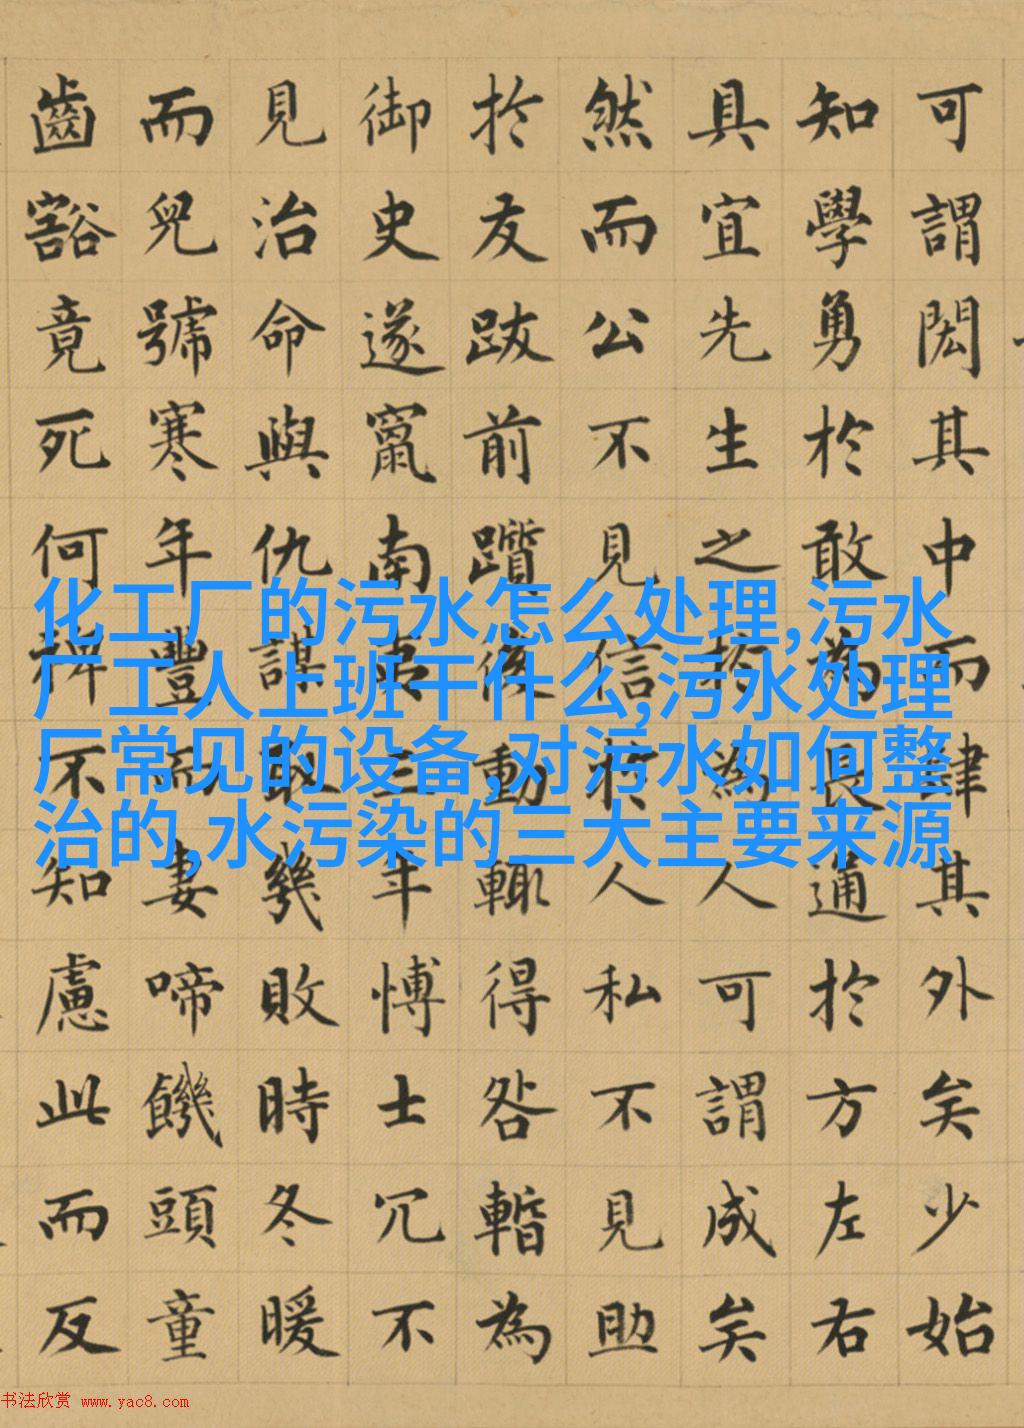 可謂閎其中而肆其外矣少始
知學勇於敢為長通於方左右
具宜先生之於為人可謂成矣
然而公不見信於人私不見助
於友跋前躓後動輒得咎暫為
御史遂竄南夷三年愽士冗不
見治命與仇謀取幾敗時冬暖
而兒號寒年豐而妻啼饑頭童
齒豁竟死何裨不知慮此而反
化工厂的污水怎么处理,污水
厂工人上班干什么,污水处理
厂常见的设备,对污水如何整
治的,水污染的三大主要来源
书法欣赏 www.yac8.com